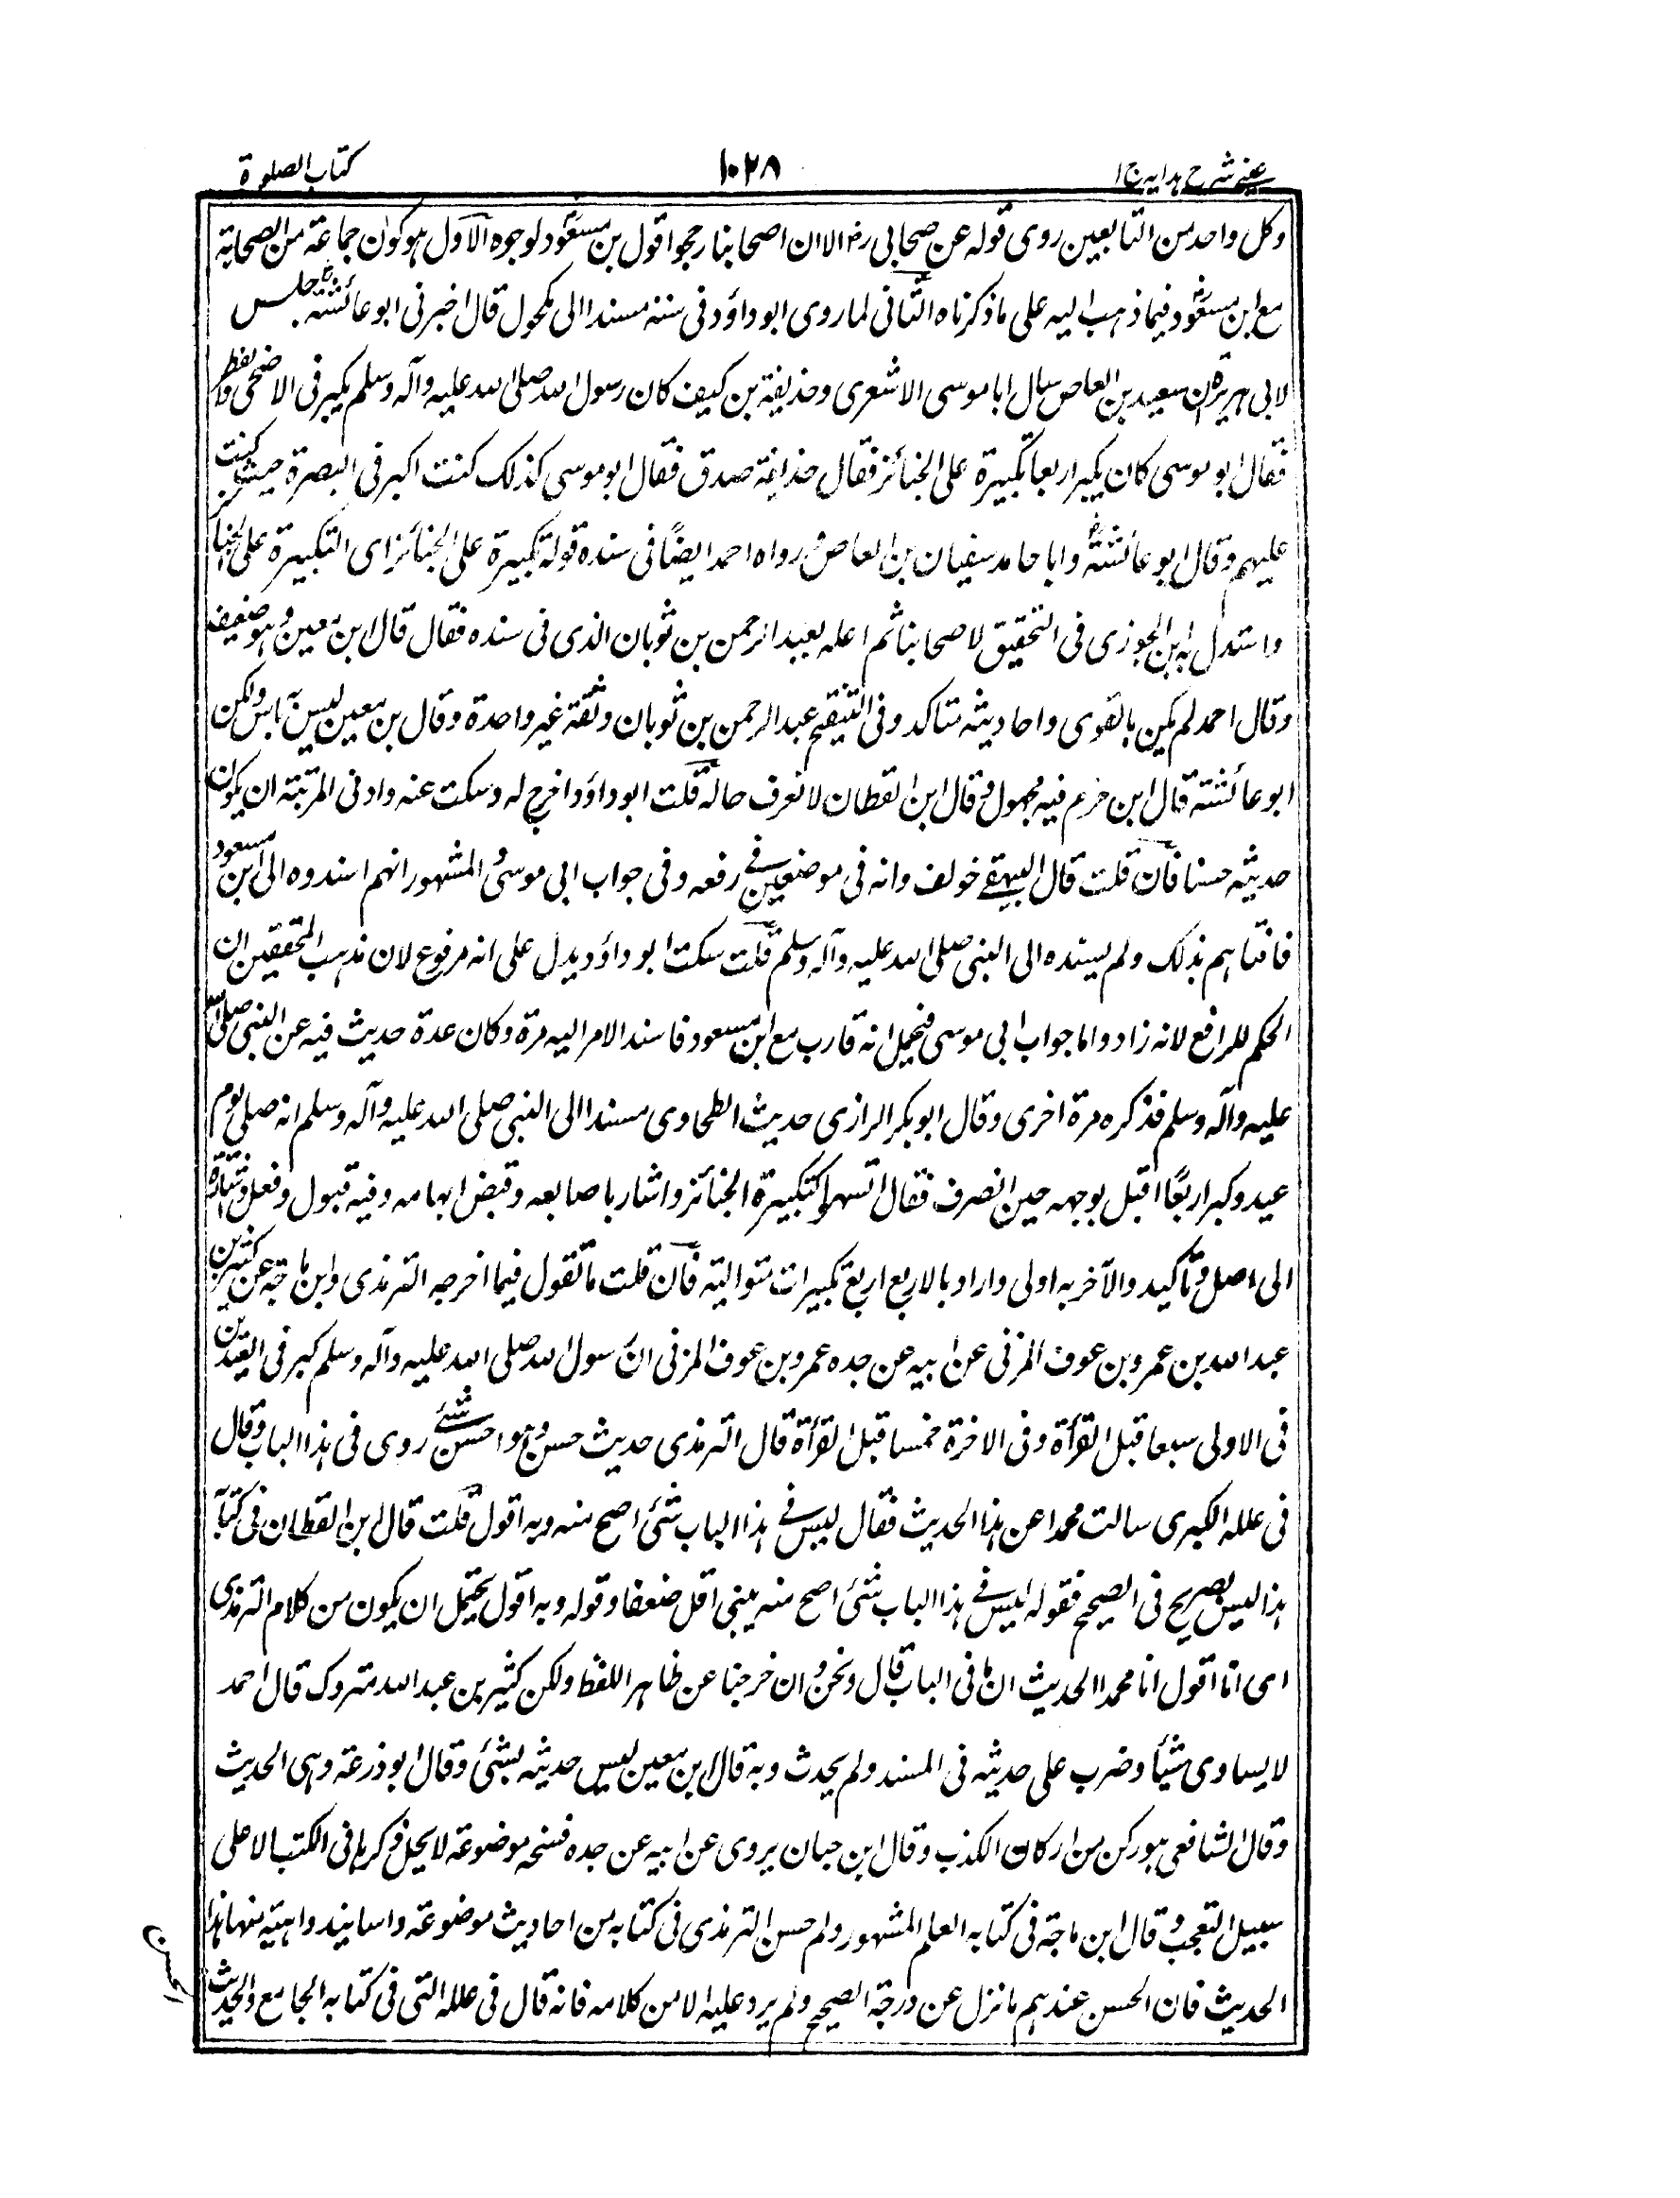 عینی شرح ہدایہ ج ا
۱۰۲۸
کتاب الصلوة
وکل واحد من التابعین روی قوله عن صحابی رضـ الا ان اصحابنا رجحوا قول بن مسعود لوجوه الاول هو کون جماعة من الصحابة
مع ابن مسعود فیما ذهب الیه علی ما ذکرناه الثانی لما روی ابو داؤد فی سننه مسندا الی مکحول قال اخبرنی ابو عائشة جلس
لابی هریرة ان سعید بن العاص سال ابا موسی الاشعری وحذیفة بن کیف کان رسول الله صلی الله علیه وآله وسلم یکبر فی الاضحی والفطر
فقال ابو موسی کان یکبر اربعا تکبیرة علی الجنائز فقال حذیفة صدق فقال ابو موسی کذلک کنت اکبر فی البصرة حیث کنت
علیهم وقال ابو عائشة وابا حامد سفیان بن العاص ورواه احمد ایضًا فی سنده قوله تکبیرة علی الجنائز ای التکبیرة علی الجنائز
واستدل به بن الجوزی فی التحقیق لاصحابنا ثم اعله بعبد الرحمن بن ثوبان الذی فی سنده فقال قال ابن معین وهو ضعیف
وقال احمد لم یکن بالقوی واحادیثه مناکد وفی التنقیح عبد الرحمن بن ثوبان وثقه غیر واحدة وقال بن معین لیس به باس ولکن
ابو عائشة قال ابن حزم فیه مجهول وقال ابن القطان لا نعرف حاله قلت ابو داؤد اخرج له وسکت عنه وادنی المرتبة ان یکون
حدیثه حسنا فان قلت قال البیهقے خولف وانه فی موضعین فے رفعه وفی جواب ابی موسی المشهور انهم اسندوه الی ابن مسعود
فافتاهم بذلک ولم یسنده الی النبی صلی الله علیه وآله وسلم قلت سکت ابو داؤد یدل علی انه مرفوع لان مذهب المحققین ان
الحکم للرافع لانه زاد واما جواب ابی موسی فیحمل انه قارب مع ابن مسعود فاسند الامر الیه مرة وکان عدة حدیث فیه عن النبی صلی الله
علیه وآله وسلم فذکره مرة اخری وقال ابو بکر الرازی حدیث الطحاوی مسندا الی النبی صلی الله علیه وآله وسلم انه صلی یوم
عید وکبر اربعًا اقبل بوجهه حین انصرف فقال اتسهوا کتکبیرة الجنائز واشار باصابعه وقبض ابهامه وفیه قبول وفعل واشارة
الی اصل وتاکید والآخر به اولی واراد بالاربع اربع تکبیرات متوالیة فان قلت ما تقول فیما اخرجه الترمذی وابن ماجة عن کثیر بن
عبد الله بن عمرو بن عوف المزنی عن ابیه عن جده عمرو بن عوف المزنی ان رسول الله صلی الله علیه وآله وسلم کبر فی العیدین
فی الاولی سبعا قبل القرأة وفی الاخرة خمسا قبل القرأة قال الترمذی حدیث حسن وهو احسن شئے روی فی هذا الباب وقال
فی علله الکبری سالت محمدا عن هذا الحدیث فقال لیس فے هذا الباب شئ اصح منه وبه اقول قلت قال ابن القطان فی کتابه
هذا لیس بصریح فی الصحیح فقوله لیس فے هذا الباب شئ اصح منه یعنی اقل ضعفا وقوله وبه اقول یحتمل ان یکون من کلام الترمذی
ای انا اقول انا محمدا الحدیث ان ما فی الباب قال ونحن وان خرجنا عن ظاهر اللفظ ولکن کثیر بن عبد الله متروک قال احمد
لا یساوی شیأ وضرب علی حدیثه فی المسند ولم یحدث وبه قال ابن معین لیس حدیثه بشئ وقال ابو ذرعة وهی الحدیث
وقال الشافعی هو رکن من ارکان الکذب وقال ابن حبان یروی عن ابیه عن جده نسخه موضوعة لا یحل ذکرها فی الکتب الا علی
سبیل التعجب وقال ابن ماجة فی کتابه العلم المشهور ولم حسن الترمذی فی کتابه من احادیث موضوعة واسانید واهیة منها هذا
الحدیث فان الحسن عندهم ما نزل عن درجة الصحیح ولم یرد علیه الا من کلامه فانه قال فی علله التی فی کتابه الجامع والحدیث
الحسن